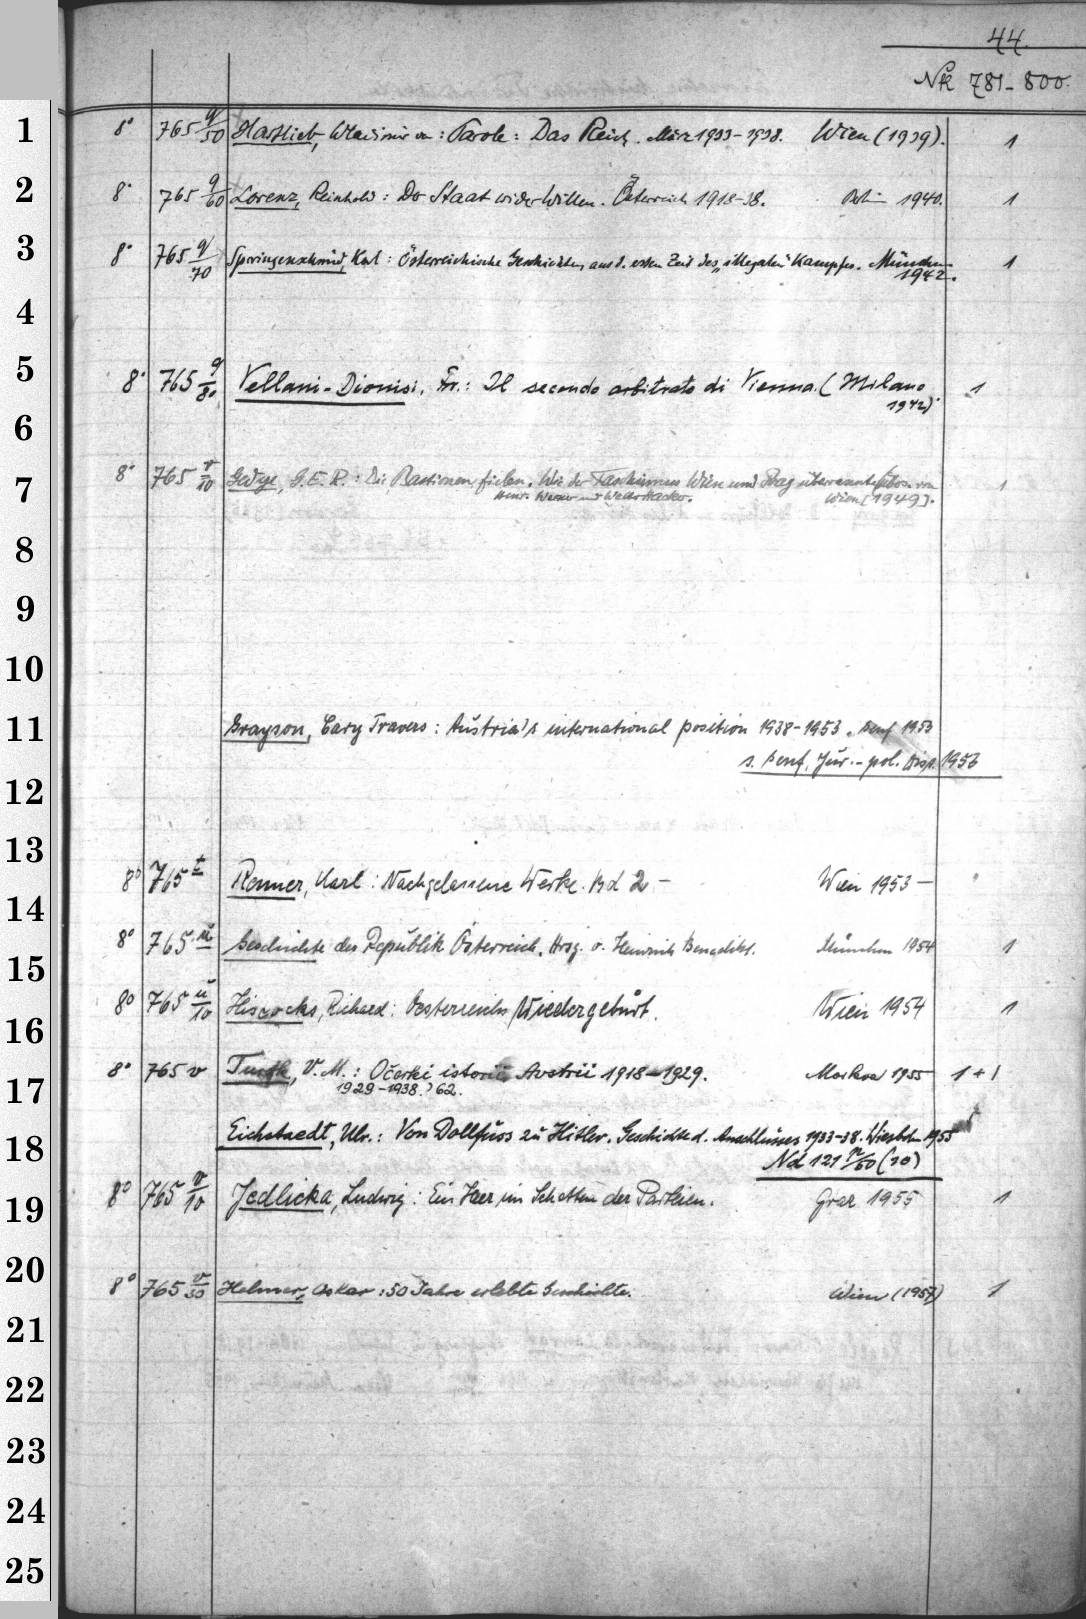 44.
Nk 781-800.
1 8° 765 q/50 Hartlieb, Wladimir von: Parole: Das Reich. März 1933-1938. Wien (1939). 1
2 8° 765 q/60 Lorenz, Reinhold: Der Staat wider Willen. Österreich 1918-38. Berlin 1940. 1
3 8° 765 q/70 Springenschmid, Karl: Österreichische Geschichten aus d. ersten Zeit des „illegalen" Kampfes. München 1
1942.
4
5 8° 765 q/80 Vellani-Dionisi, Fr.: Il secondo arbitrato di Vienna. (Milano 1
1942)
6
7 8° 765 r/10 Gedye, G.E.R.: Die Bastionen fielen. Wie der Faschismus Wien und Prag überrannte. Übers. von 1
Henr. Werner und Walter Hacker. Wien [1949].
8
9
10
11 Grayson, Cary Travers: Austria's international position 1938-1953. Genf 1953
s. Genf, Jur.-pol. Diss. 1956
12
13 8° 765 t Renner, Karl: Nachgelassene Werke. Bd 2- Wien 1953-
14
8° 765 u Geschichte der Republik Österreich. Hrsg. v. Heinrich Benedikt. München 1954 1
15
8° 765 u/10 Hiscocks, Richard: Oesterreichs Wiedergeburt. Wien 1954 1
16
8° 765 v Turok, V.M.: Očerki istorii Avstrii 1918-1929. Moskva 1955 1+1
17 1929-1938.) 62.
18 Eichstaedt, Ulr.: Von Dollfuss zu Hitler. Geschichte d. Anschlusses 1933-38. Wiesbdn 1955
Nd 121 n/50 (10)
19 8° 765 v/10 Jedlicka, Ludwig: Ein Heer im Schatten der Parteien. Graz 1955 1
20 8° 765 v/30 Helmer, Oskar: 50 Jahre erlebte Geschichte. Wien (1957) 1
21
22
23
24
25